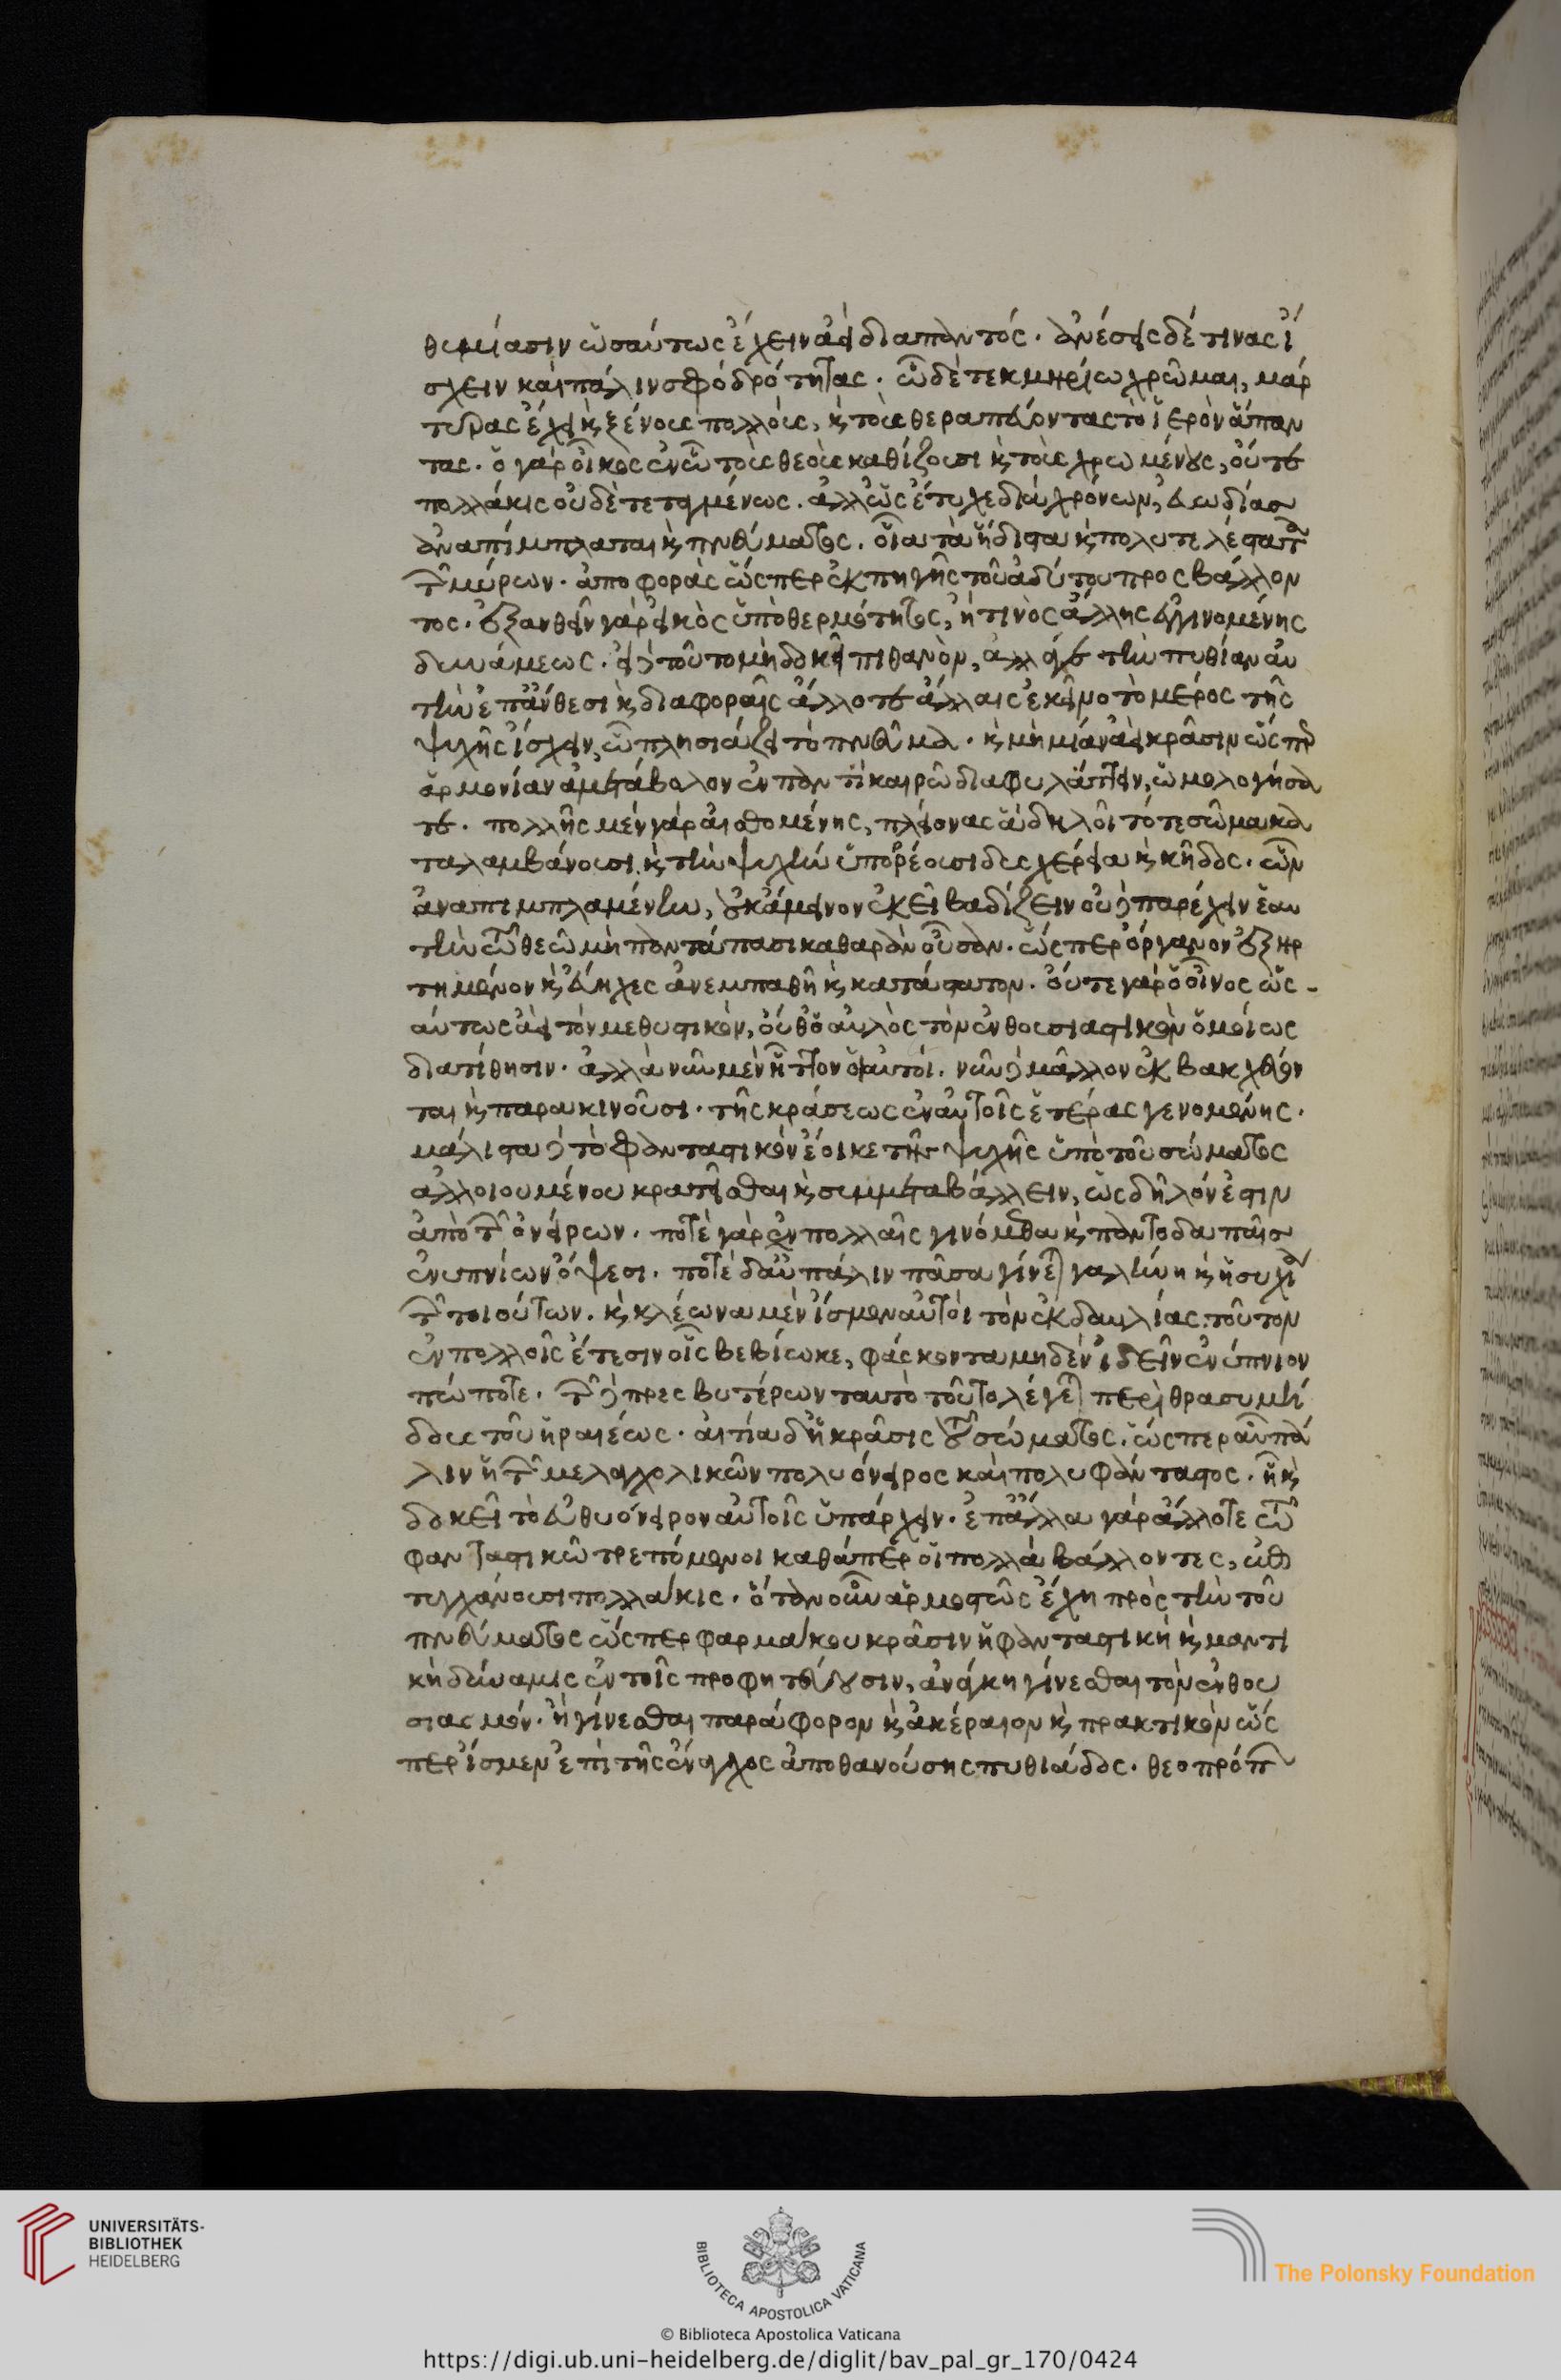 θυμίασιν ὡσαύτως ἔχειν ἀεὶ διαπαντός. ἀνέσεις δέ τινας ἴ
σχειν καὶ πάλιν σφόδρότητας. ὧ δὲ τεκμηρίω χρῶμαι, μάρ
τυρας ἔχει ϗ ξένους πολλοὺς, ϗ τοὺς θεραπεύοντας τὸ ἱερὸν ἅπαν
τας. ὁ γὰρ οἶκος ἐν ὧ τοὺς θεοὺς καθίζουσι ϗ τοὺς χρωμένους, οὔτε
πολλάκις οὐδὲ τεταγμένως. ἀλλ' ὡς ἔτυχε διὰ χρόνων, εὐωδίας
ἀναπίμπλαται ϗ πνεύματος. οἷα τὰ ἥδιστα ϗ πολυτελέστατα
τῶν μύρων. ἀποφορὰς ὥσπερ ἐκ πηγῆς τοῦ ἀδύτου προςβάλλον
τος. ἐξανθεῖν γὰρ εἰκὸς ὑπὸ θερμότητος, ἤ τινὸς ἄλλης ἐγγινομένης
δυνάμεως. εἰ δὲ τοῦτο μὴ δοκεῖ πιθανὸν, ἀλλά γε τὴν πυθίαν αὐ
τὴν ἐπάνθεσι ϗ διαφοραῖς ἄλλοτε ἄλλαις ἐκεῖνο τὸ μέρος τῆς
ψυχῆς ἴσχειν, ὧ πλησιάζει τὸ πνεῦμα. ϗ μὴ μίαν ἀεὶ κρᾶσιν ὥςπερ
ἁρμονίαν ἀμετάβολον ἐν παντὶ καιρῶ διαφυλάττειν, ὡμολογήσα
τε. πολλῆς μὲν γὰρ αἰσθομένης, πλείονας ἄδηλοι τό τε σῶμα κα
ταλαμβάνουσι ϗ τὴν ψυχὴν ὑπορρέουσι δυσχέρεια ϗ κῆδος. ὧν
ἀναπιμπλαμένην, οὐκ ἄμεινον ἐκεῖ βαδίζειν οὐδὲ παρέχειν ἑαυ
τὴν τῶ θεῶ μὴ παντάπασι καθαρὰν οὖσαν. ὥςπερ ὄργανον ἐξηρ
τημένον ϗ εὐηχὲς ἀνεμπαθῆ ϗ κατάστατον. οὔτε γὰρ ὁ οἶνος ὡς-
αύτως ἀεὶ τὸν μεθυστικὸν, οὔθ' ὁ αὐλὸς τὸν ἐνθουσιαστικὸν ὁμοίως
διατίθησιν. ἀλλὰ νῦν μὲν ἧττον οἱ αὐτοί. νῦν δὲ μᾶλλον ἐκβακχεύον
ται ϗ παρακινοῦσι. τῆς κράσεως ἐν αὐτοῖς ἑτέρας γενομένης.
μάλιστα δὲ τὸ φανταστικὸν ἔοικε τῆς ψυχῆς ὑπὸ τοῦ σώματος
ἀλλοιουμένου κρατεῖσθαι ϗ συμμεταβάλλειν, ὡς δῆλόν ἐστιν
ἀπὸ τῶν ὀνείρων. ποτὲ γὰρ ἐν πολλαῖς γινόμεθα ϗ παντοδαπαῖς
ἐνυπνίων ὄψεσι. ποτὲ δ' αὖ πάλιν πᾶσα γίνεται γαλήνη ϗ ἡσυχία
τῶν τοιούτων. ϗ κλέωνα μὲν ἴσμεν αὐτοὶ τὸν ἐκ δαυλίας. τοῦτον
ἐν πολλοῖς ἔτεσιν οἷς βεβίωκε, φάςκοντα μηδὲν ἰδεῖν ἐνύπνιον
πώποτε. τῶν δὲ πρεςβυτέρων ταυτὸ τοῦτο λέγεται περὶ θρασυμή
δους τοῦ ἡραιέως. αἰτία δ' ἡ κρᾶσις τοῦ σώματος. ὥςπερ αὖ πά
λιν ἡ τῶν μελαγχολικῶν πολυόνειρος καὶ πολυφάνταστος. ἧ ϗ
δοκεῖ τὸ εὐθυόνειρον αὐτοῖς ὑπάρχειν. ἐπ' ἄλλα γὰρ ἄλλοτε τῶ
φανταστικῶ τρεπόμενοι καθάπερ οἱ πολλὰ βάλλοντες, εὐθ
τυγχάνουσι πολλάκις. ὅταν οὖν ἁρμοστῶς ἔχη πρὸς τὴν τοῦ
πνεύματος ὥςπερ φαρμάκου κρᾶσιν ἡ φανταστικὴ ϗ μαντι
κὴ δύναμις ἐν τοῖς προφητεύουσιν, ἀνάγκη γίνεσθαι τὸν ἐνθου
σιασμόν. ἢ γίνεσθαι παράφορον ϗ ἀκέραιον ϗ πρακτικὸν ὥς
περ ἴσμεν ἐπὶ τῆς ἔναγχος ἀποθανούσης πυθιάδος. θεοπρόπ
UNIVERSITÄTS-
BIBLIOTHEK
HEIDELBERG
BIBLIOTECA APOSTOLICA VATICANA
The Polonsky Foundation
© Biblioteca Apostolica Vaticana
https://digi.ub.uni-heidelberg.de/diglit/bav_pal_gr_170/0424